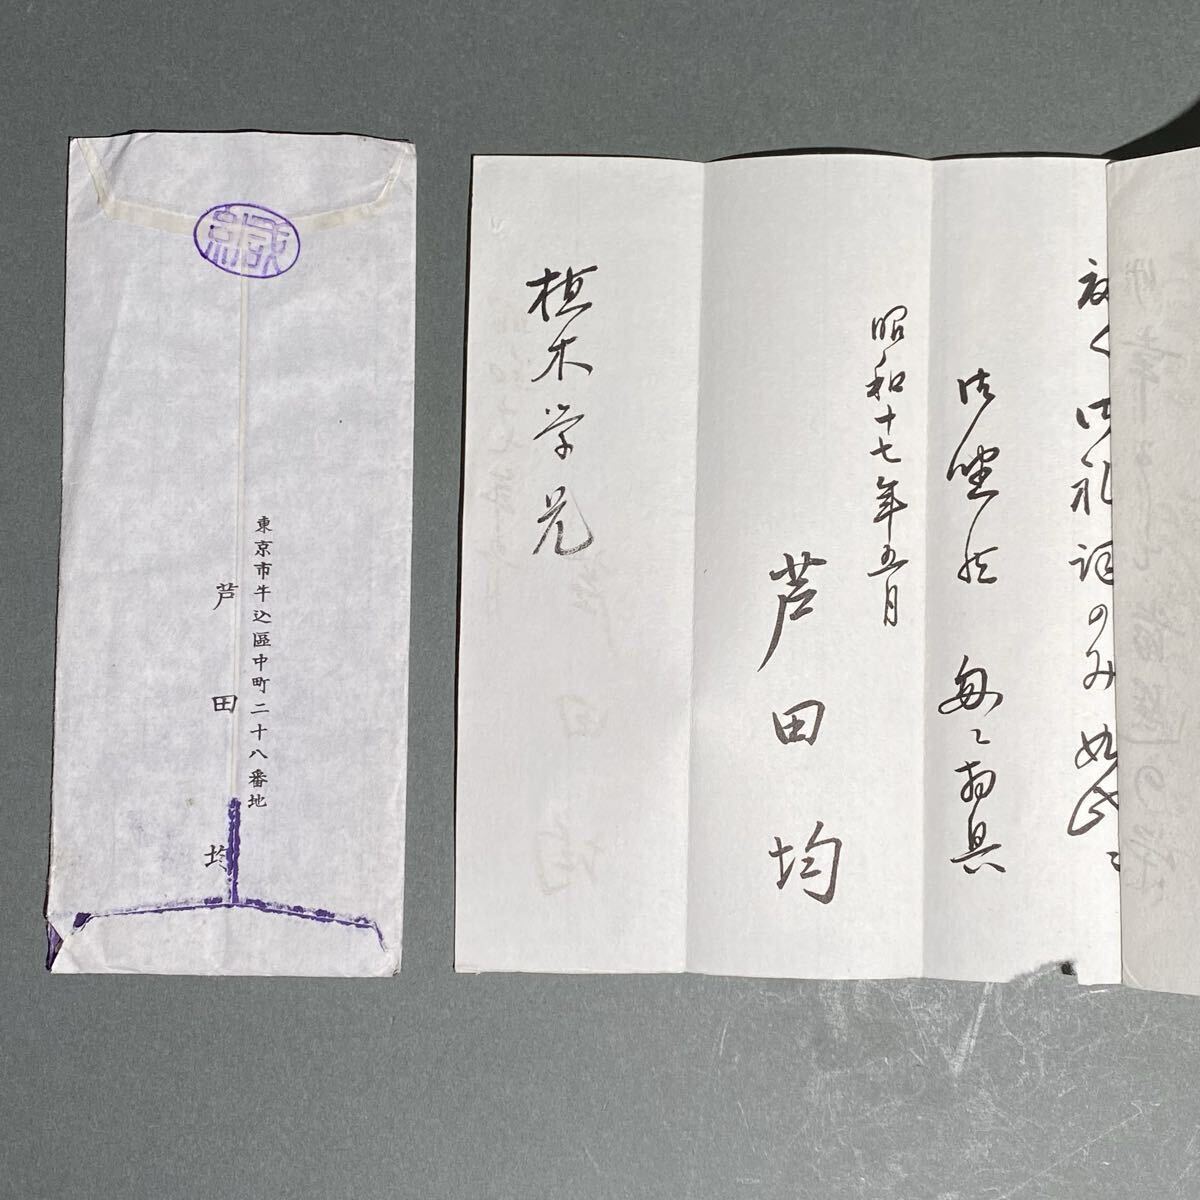 緘
東京市牛込區中町二十八番地
芦田均
く御礼詞のみ如此ニ
御座候 具
昭和十七年五月
芦田均
植木学兄